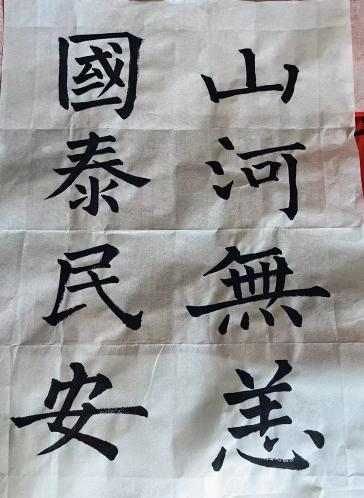 山河無恙
國泰民安